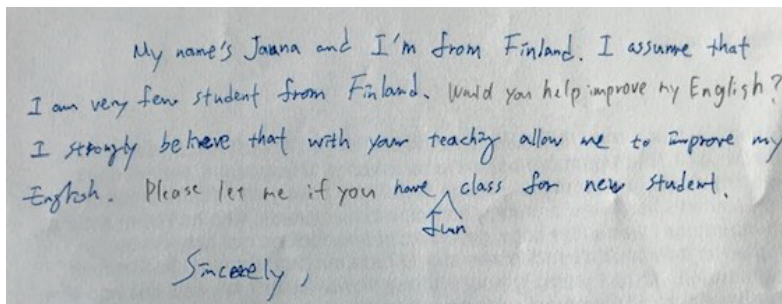 My name's Jaana and I'm from Finland. I assume that
I am very few student from Finland. Would you help improve my English?
I strongly believe that with your teaching allow me to improve my
English. Please let me if you have class for new student.
fun
Sincerely,